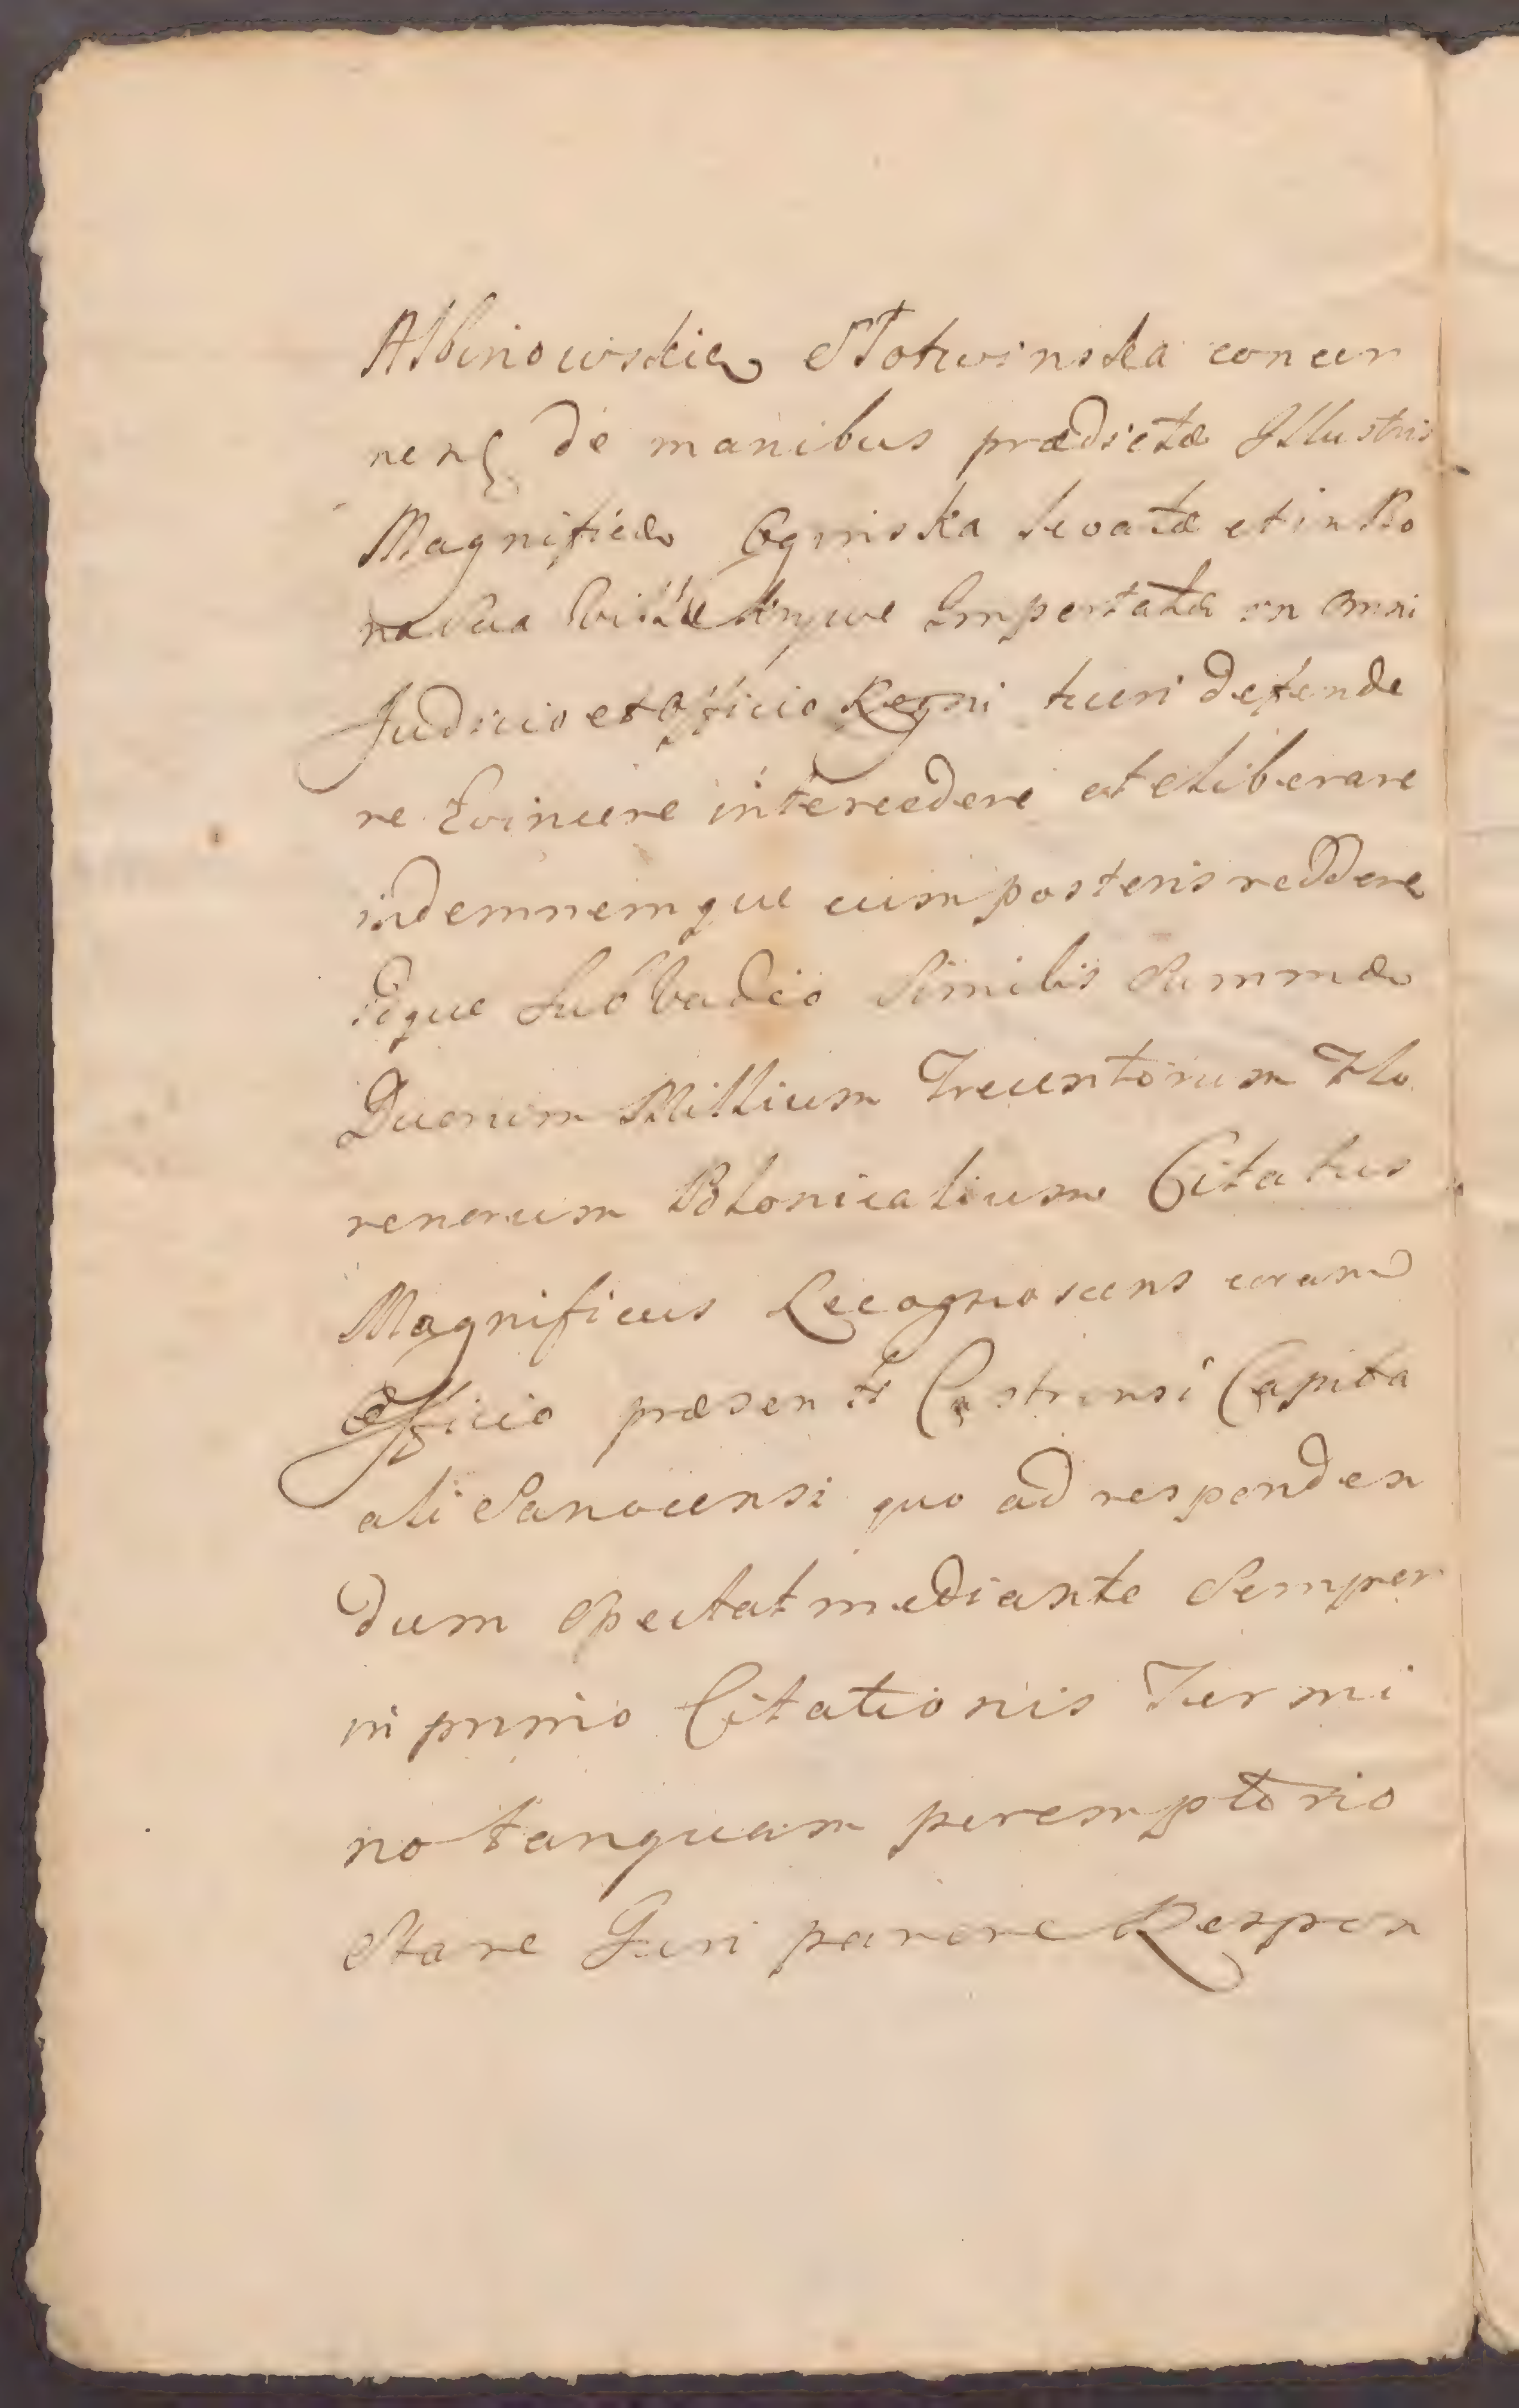 Albinowskie Słotwinska concer
nen de manibus prædictæ Illustris
Magnificæ Oginska levatæ et in Bo
na sua importatæ in omni
Judicio et Officio Regni tueri defende
re Evincere intercedere et eliberare
indemnemque cum posteris reddere
Idque Sub Vadio Similis Summæ
Duorum Millium Trecentorum Flo
renorum Polonicalium Citatus
Magnificus Recognoscens coram
Officio præsenti Castrensi Capita
ali Sanocensi quo ad responden
dum Spectat mediante Semper
in primo Citationis Termi
no tanquam peremptorio
Stare Juri parere Respon